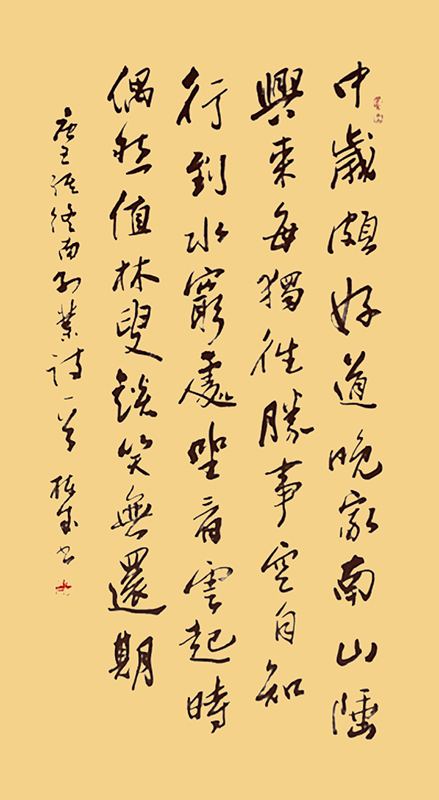 中歲頗好道晚家南山陲
興來每獨往勝事空自知
行到水窮處坐看雲起時
偶然值林叟談笑無還期
唐王維終南別業詩一首 書